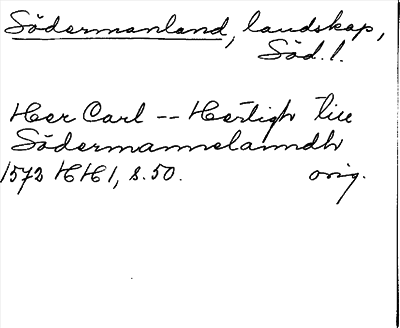 Södermanland, landskap,
Söd.l.
Her Carl -- Hertigh till
Södermannelanndh
1572 HH1, s.50. orig.